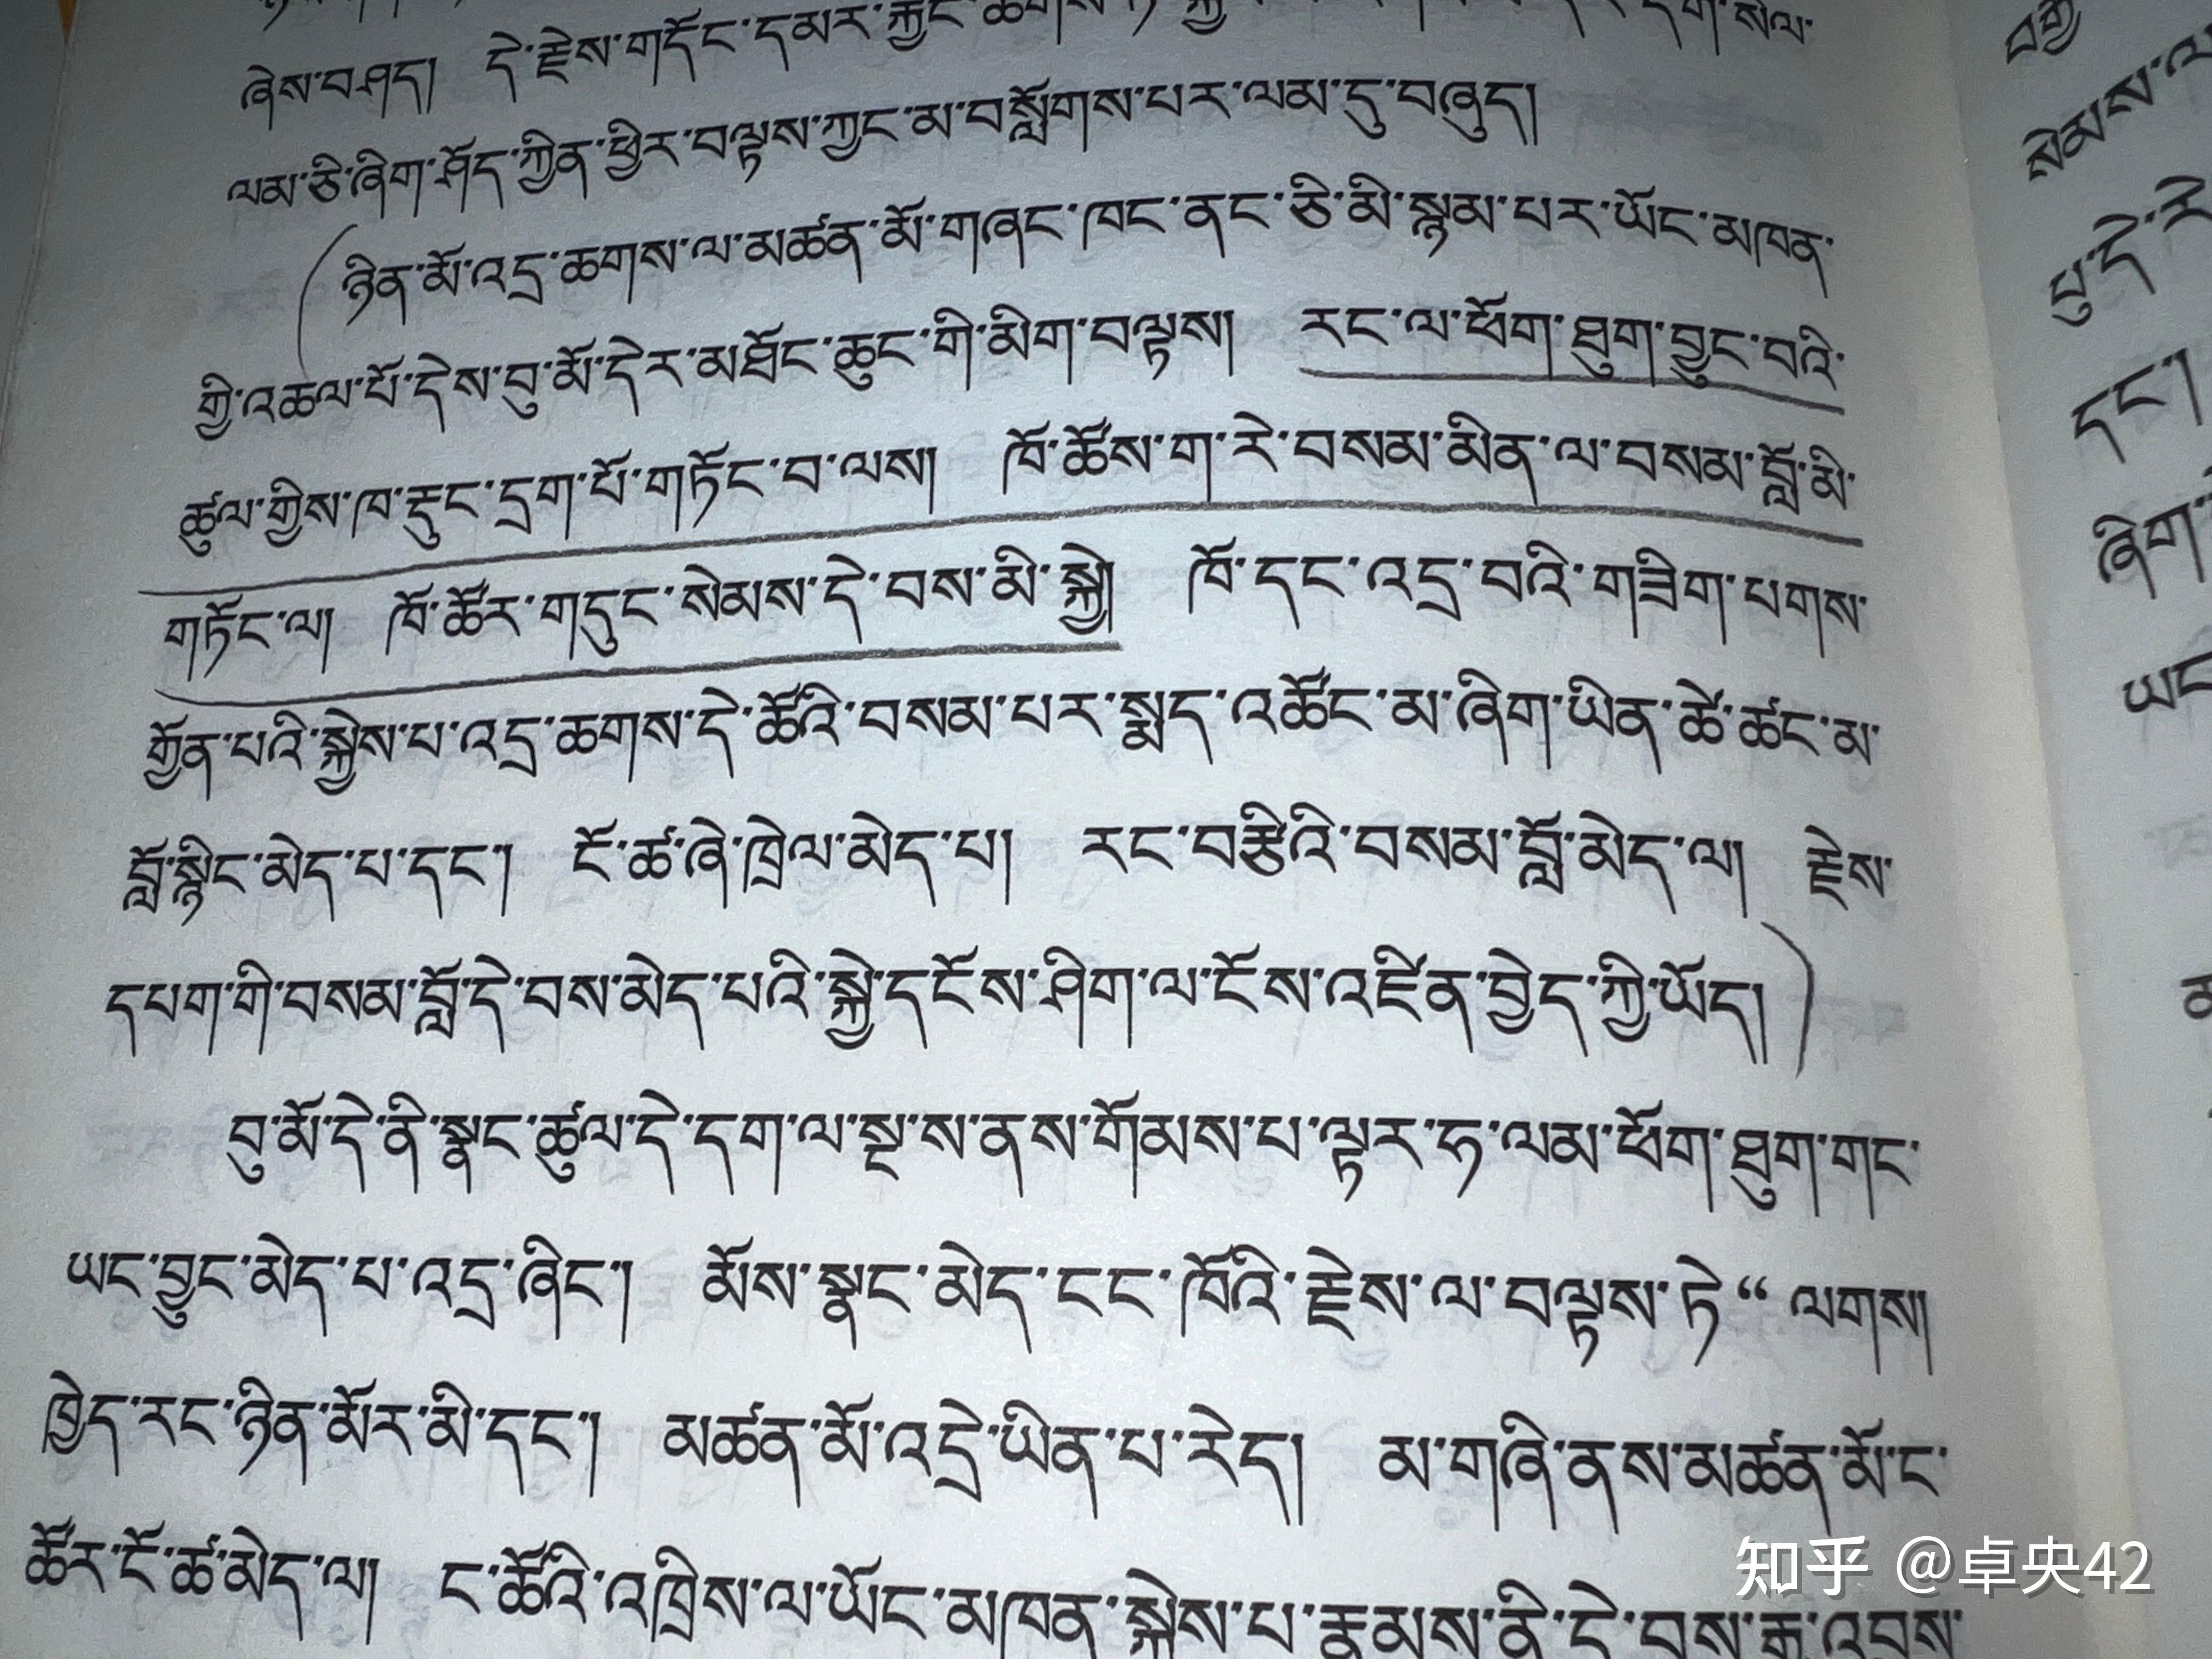 ཞེས་བཤད། དེ་རྗེས་གདོང་དམར་རྐྱང་ཆགས་
ལམ་ཅི་ཞིག་ཤོད་ཀྱིན་ཕྱིར་བལྟས་ཀྱང་མ་བསློགས་པར་ལམ་དུ་བཞུད།
(ཉིན་མོ་འདྲ་ཆགས་ལ་མཚན་མོ་གཞང་ཁང་ནང་ཅི་མི་སྙམ་པར་ཡོང་མཁན་
གྱི་འཆལ་པོ་དེས་བུ་མོ་དེར་མཐོང་ཆུང་གི་མིག་བལྟས། རང་ལ་ཕོག་ཐུག་བྱུང་བའི་
ཚུལ་གྱིས་ཁ་རྡུང་དྲག་པོ་གཏོང་བ་ལས། ཁོ་ཚོས་ག་རེ་བསམ་མིན་ལ་བསམ་བློ་མི་
གཏོང་ལ། ཁོ་ཚོར་གདུང་སེམས་དེ་བས་མི་སྐྱེ། ཁོ་དང་འདྲ་བའི་གཟིག་པགས་
གྱོན་པའི་སྐྱེས་པ་འདྲ་ཆགས་དེ་ཚོའི་བསམ་པར་སྨད་འཚོང་མ་ཞིག་ཡིན་ཚེ་ཚང་མ་
བློ་སྙིང་མེད་པ་དང་། ངོ་ཚ་ཞེ་ཁྲེལ་མེད་པ། རང་བརྩིའི་བསམ་བློ་མེད་ལ། རྗེས་
དཔག་གི་བསམ་བློ་དེ་བས་མེད་པའི་སྐྱེ་དངོས་ཤིག་ལ་ངོས་འཛིན་བྱེད་ཀྱི་ཡོད།)
བུ་མོ་དེ་ནི་སྣང་ཚུལ་དེ་དག་ལ་སྔ་ས་ནས་གོམས་པ་ལྟར་ཧ་ལམ་ཕོག་ཐུག་གང་
ཡང་བྱུང་མེད་པ་འདྲ་ཞིང་། མོས་སྣང་མེད་ངང་ཁོའི་རྗེས་ལ་བལྟས་ཏེ“ ལགས།
ཁྱེད་རང་ཉིན་མོར་མི་དང་། མཚན་མོ་འདྲེ་ཡིན་པ་རེད། མ་གཞི་ནས་མཚན་མོ་ང་
ཚོར་ངོ་ཚ་མེད་ལ། ང་ཚོའི་འཁྲིས་ལ་ཡོང་མཁན་སྐྱེས་པ་རྣམས་ནི་དེ་བས་
知乎 @卓央42